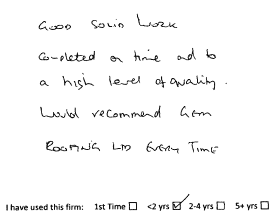 GOOD SOLID WORK
Completed on time and to
a high level of quality.
Would recommend Gem
ROOFING LTD EVERY TIME
I have used this firm: 1st Time ☐ <2 yrs ☑ 2-4 yrs ☐ 5+ yrs ☐